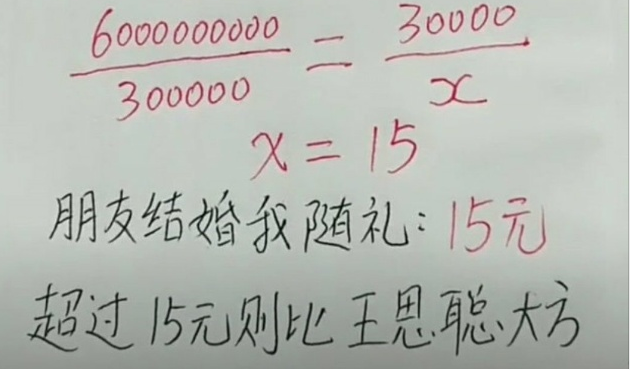 6000000000/300000 = 30000/x
x = 15
朋友结婚我随礼：15元
超过15元则比王思聪大方